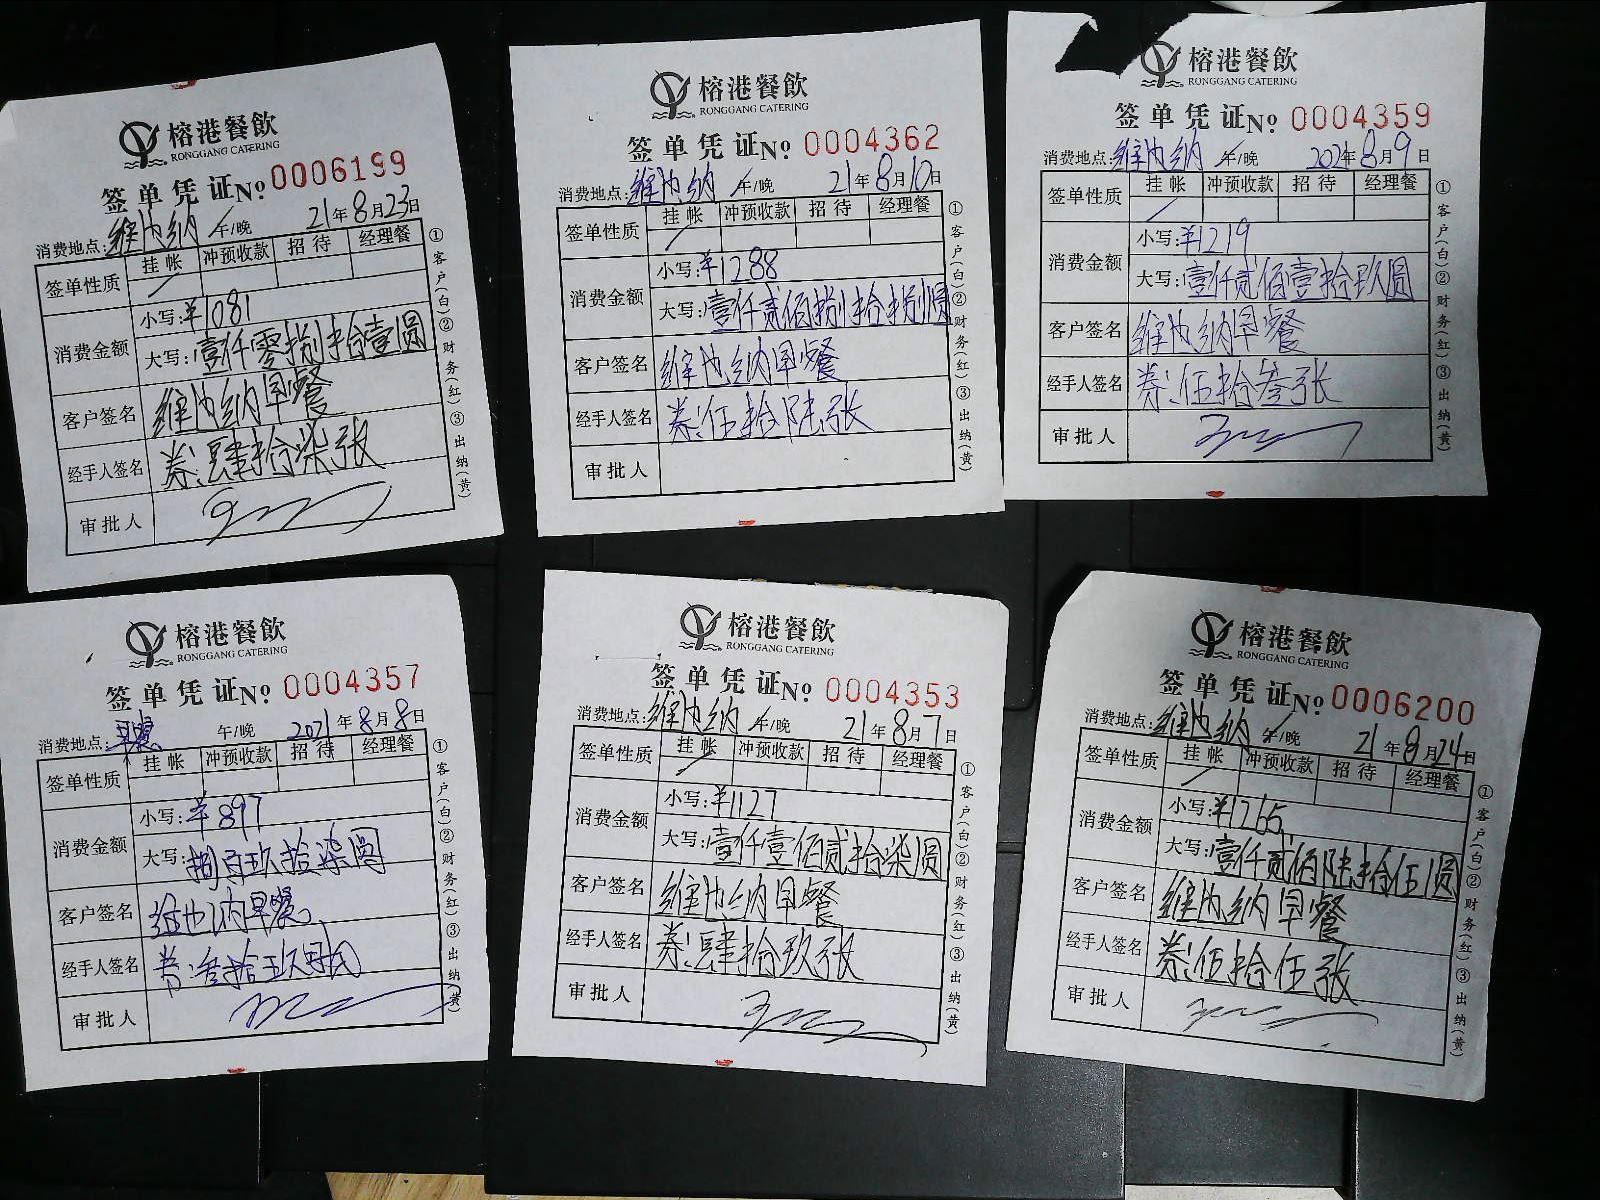 榕港餐飲
RONGGANG CATERING
签单凭证 № 0006199
消费地点: 维也纳 午/晚 21年8月23日
签单性质 挂帐 冲预收款 招待 经理餐
消费金额 小写: ¥1081
大写: 壹仟零捌拾壹圆
客户签名 维也纳早餐
经手人签名 券:肆拾柒张
审批人
①客户(白)②财务(红)③出纳(黄)
榕港餐飲
RONGGANG CATERING
签单凭证 № 0004362
消费地点: 维也纳 午/晚 21年8月10日
签单性质 挂帐 冲预收款 招待 经理餐
消费金额 小写: ¥1288
大写: 壹仟贰佰捌拾捌圆
客户签名 维也纳早餐
经手人签名 券:伍拾陆张
审批人
①客户(白)②财务(红)③出纳(黄)
榕港餐飲
RONGGANG CATERING
签单凭证 № 0004359
消费地点: 维也纳 午/晚 2021年8月9日
签单性质 挂帐 冲预收款 招待 经理餐
消费金额 小写: ¥1219
大写: 壹仟贰佰壹拾玖圆
客户签名 维也纳早餐
经手人签名 券:伍拾叁张
审批人
①客户(白)②财务(红)③出纳(黄)
榕港餐飲
RONGGANG CATERING
签单凭证 № 0004357
消费地点: 早餐 午/晚 2021年8月8日
签单性质 挂帐 冲预收款 招待 经理餐
消费金额 小写: ¥897
大写: 捌百玖拾柒圆
客户签名 维也纳早餐
经手人签名 券:叁拾玖张
审批人
①客户(白)②财务(红)③出纳(黄)
榕港餐飲
RONGGANG CATERING
签单凭证 № 0004353
消费地点: 维也纳 午/晚 21年8月7日
签单性质 挂帐 冲预收款 招待 经理餐
消费金额 小写: ¥1127
大写: 壹仟壹佰贰拾柒圆
客户签名 维也纳早餐
经手人签名 券:肆拾玖张
审批人
①客户(白)②财务(红)③出纳(黄)
榕港餐飲
RONGGANG CATERING
签单凭证 № 0006200
消费地点: 维也纳 午/晚 21年8月24日
签单性质 挂帐 冲预收款 招待 经理餐
消费金额 小写: ¥1265
大写: 壹仟贰佰陆拾伍圆
客户签名 维也纳早餐
经手人签名 券:伍拾伍张
审批人
①客户(白)②财务(红)③出纳(黄)